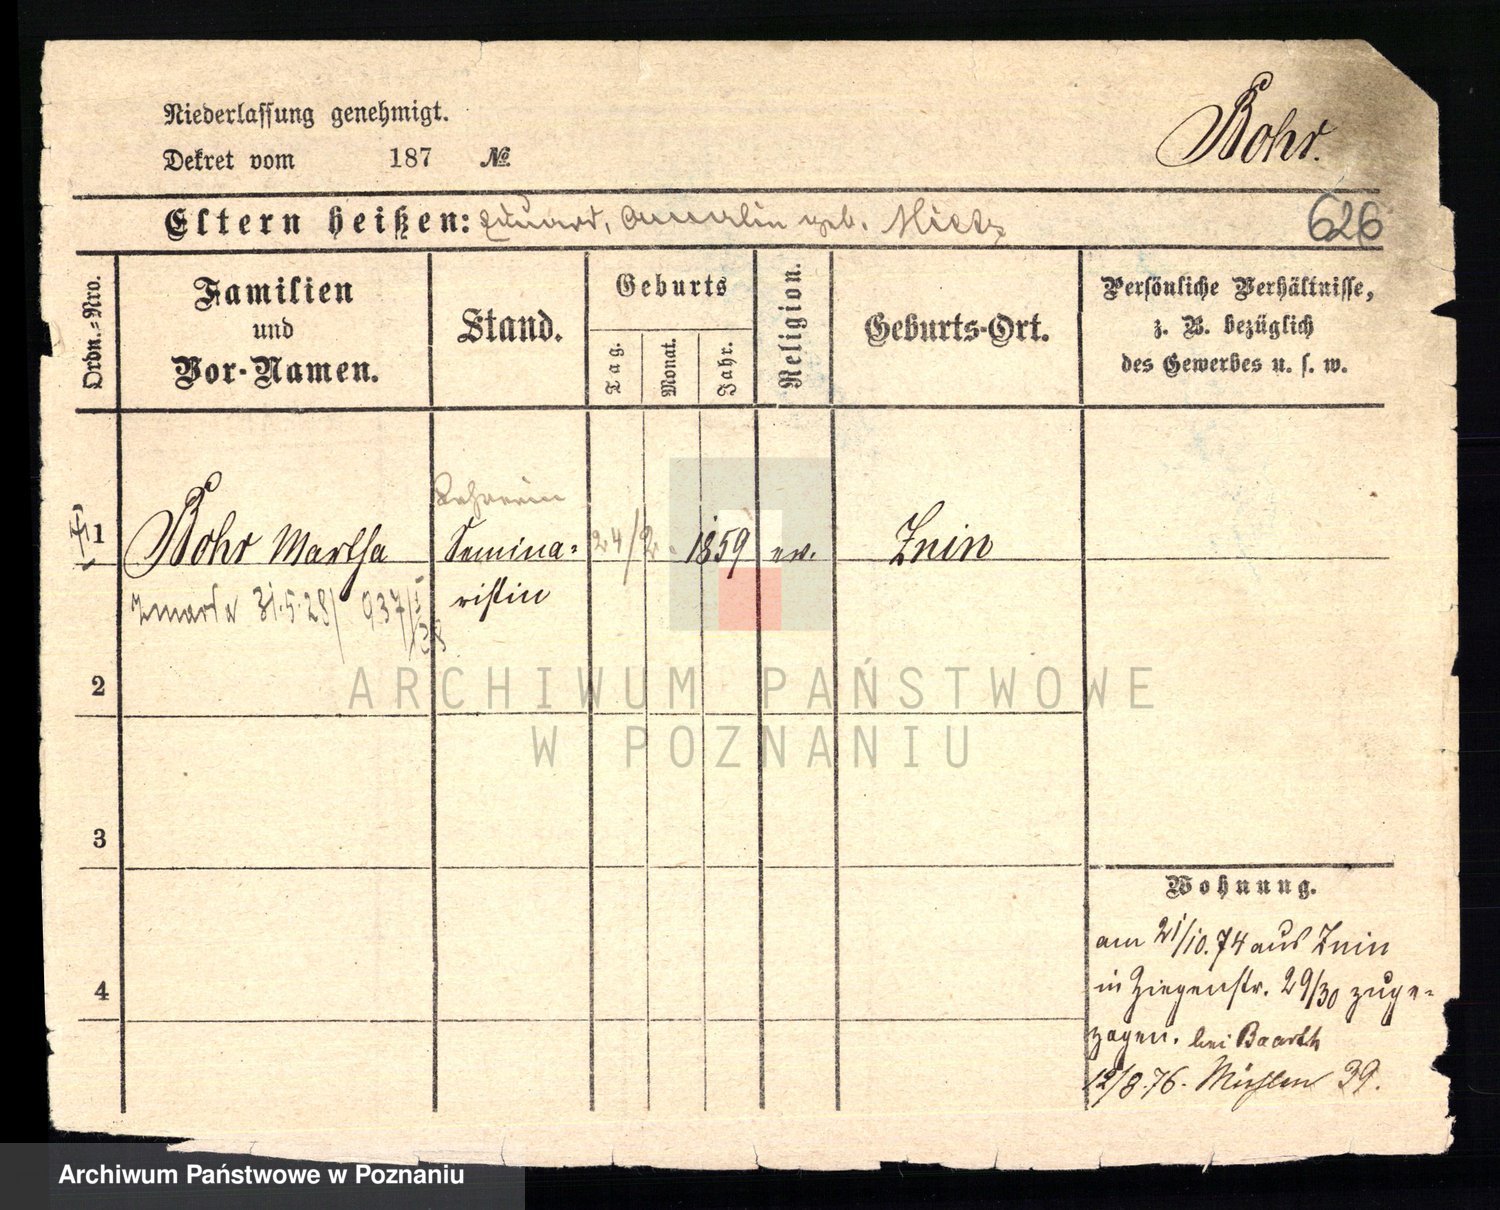 Niederlassung genehmigt.
Dekret vom 187 №
Bohr.
Eltern heißen: Eduard, Amalie geb. Mietz
626
Ordn.-Nro.
Familien und Vor-Namen.
Stand.
Geburts
Tag.
Monat.
Jahr.
Religion.
Geburts-Ort.
Persönliche Verhältnisse,
z. B. bezüglich
des Gewerbes u. s. w.
Lehrerin
1 Bohr Martha Semina= 24/2. 1859 ev. Znin
ristin
zmarła 31.5.28/ 937/I
28
2
3
4
Wohnung.
am 21/10.74 aus Znin
in Ziegenstr. 29/30 zuge-
zogen. bei Baarth
12/8.76. Mühlen 39.
ARCHIWUM PAŃSTWOWE
W POZNANIU
Archiwum Państwowe w Poznaniu